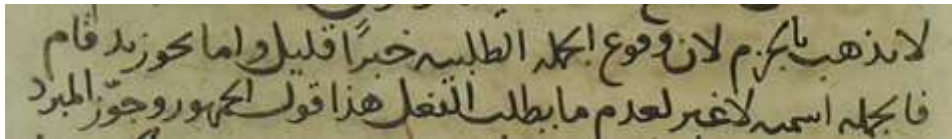 لا تذهب بالجزم لان وقوع الجملة الطلبيه خبرًا قليل واما نحو زيد قام
فالجملة اسميه لا غير لعدم ما يطلب الفعل هذا قول الجمهور وجوّز المبرد